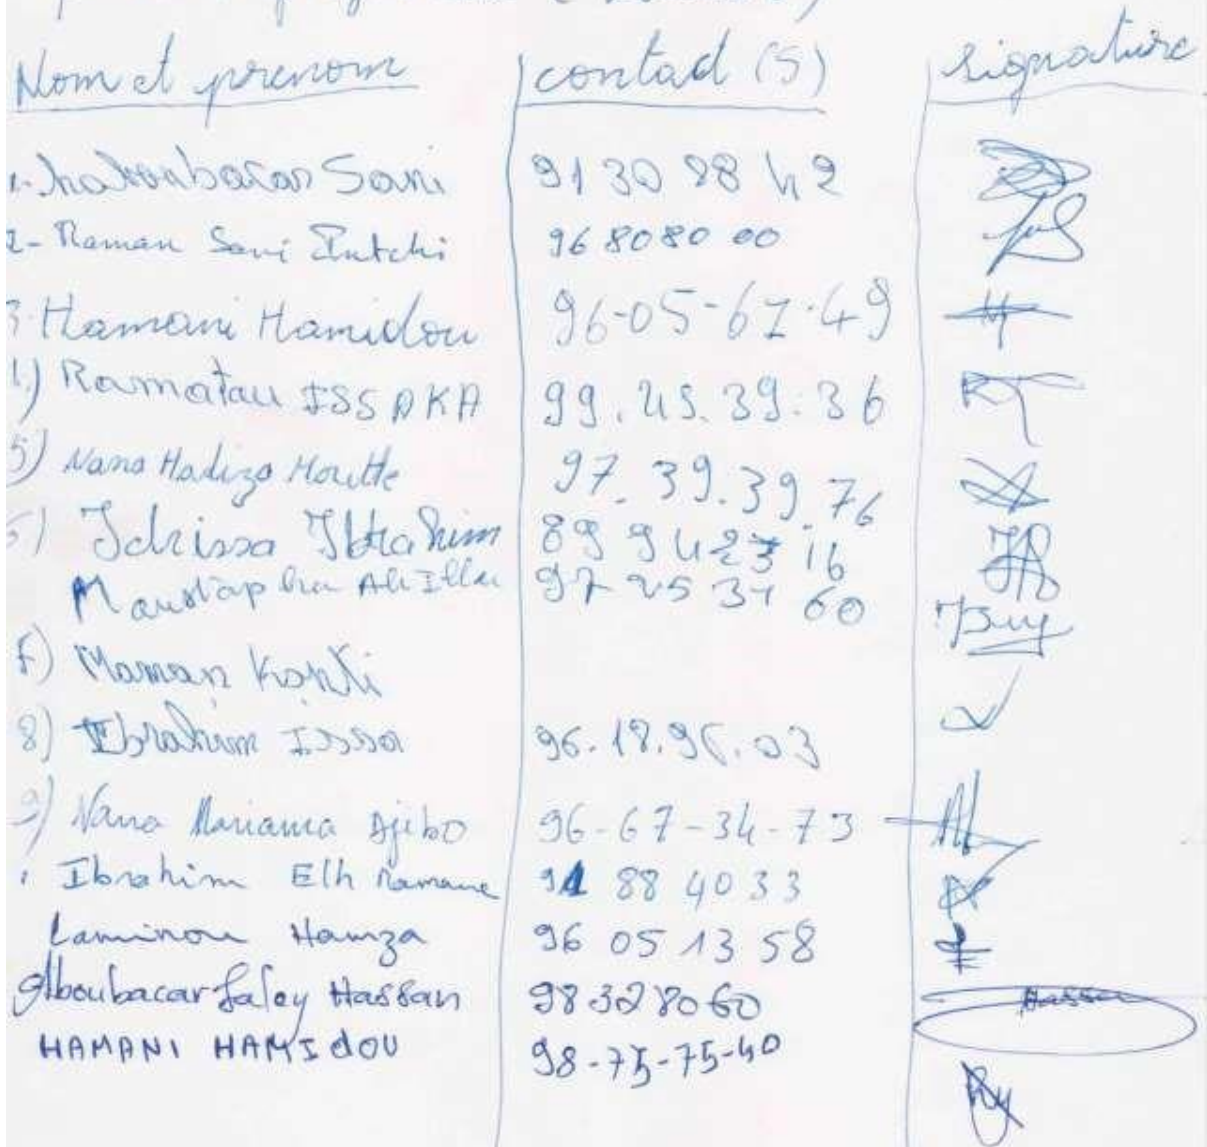 Nom et prenom contact (S) signature
Sani 91 30 88 42
2- Raman Sani 96 80 80 00
3. Hamani Hamidou 96-05-67-49
) Ramatou ISSAKA 99.45.39.36
5) Nana Hadiza 97.39.39.76
6) Idrissa Ibrahim 89 94 23 16
Moustapha Ali Illa 97 25 31 60
) Maman
8) Ibrahim Issa 96.18.96.03
9) Nana Mariama Ajibo 96-67-34-73
Ibrahim Elh Ramane 91 88 40 33
Laminou Hamza 96 05 13 58
Aboubacar Saley Hassan 98 32 80 60 Hassan
HAMANI HAMIdOU 98-75-75-40